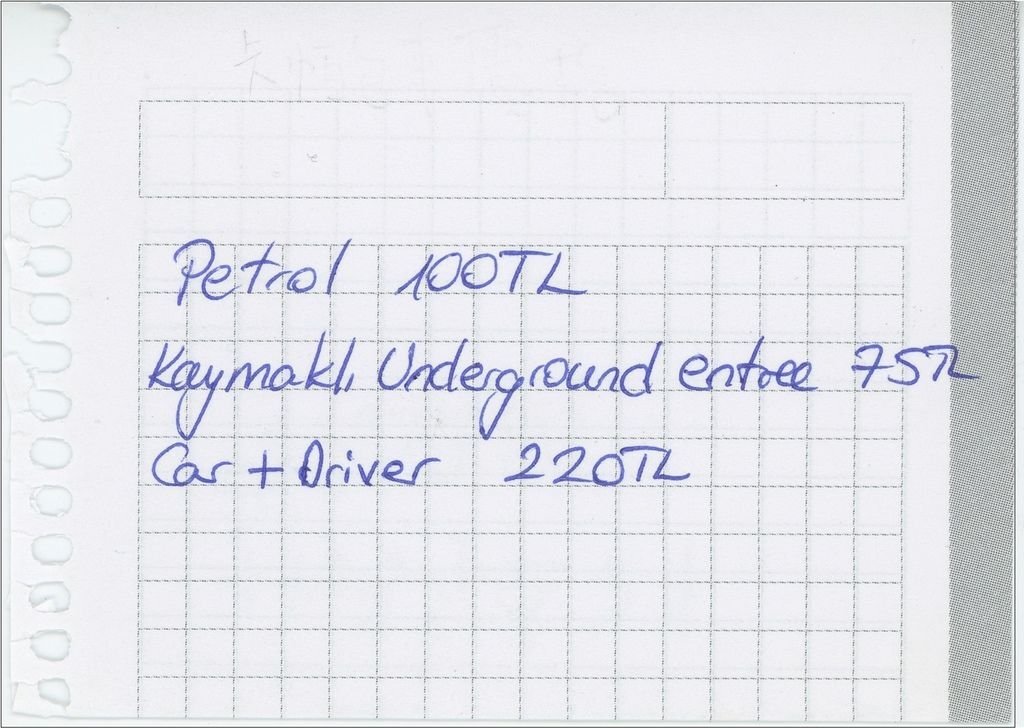 Petrol 100TL
Kaymaklı Underground entree 75TL
Car + Driver 220TL